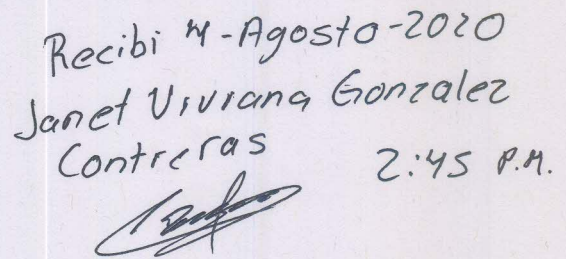 Recibi 4-Agosto-2020
Janet Viviana Gonzalez
Contreras
2:45 P.M.